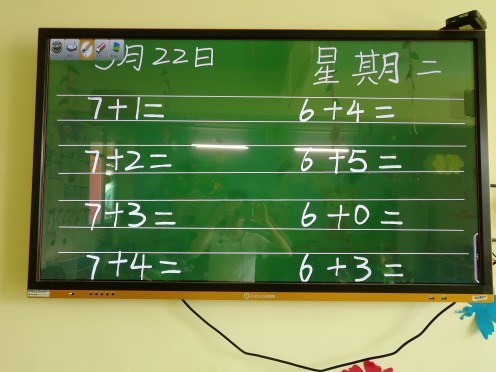 月22日 星期二
7+1= 6+4=
7+2= 6+5=
7+3= 6+0=
7+4= 6+3=